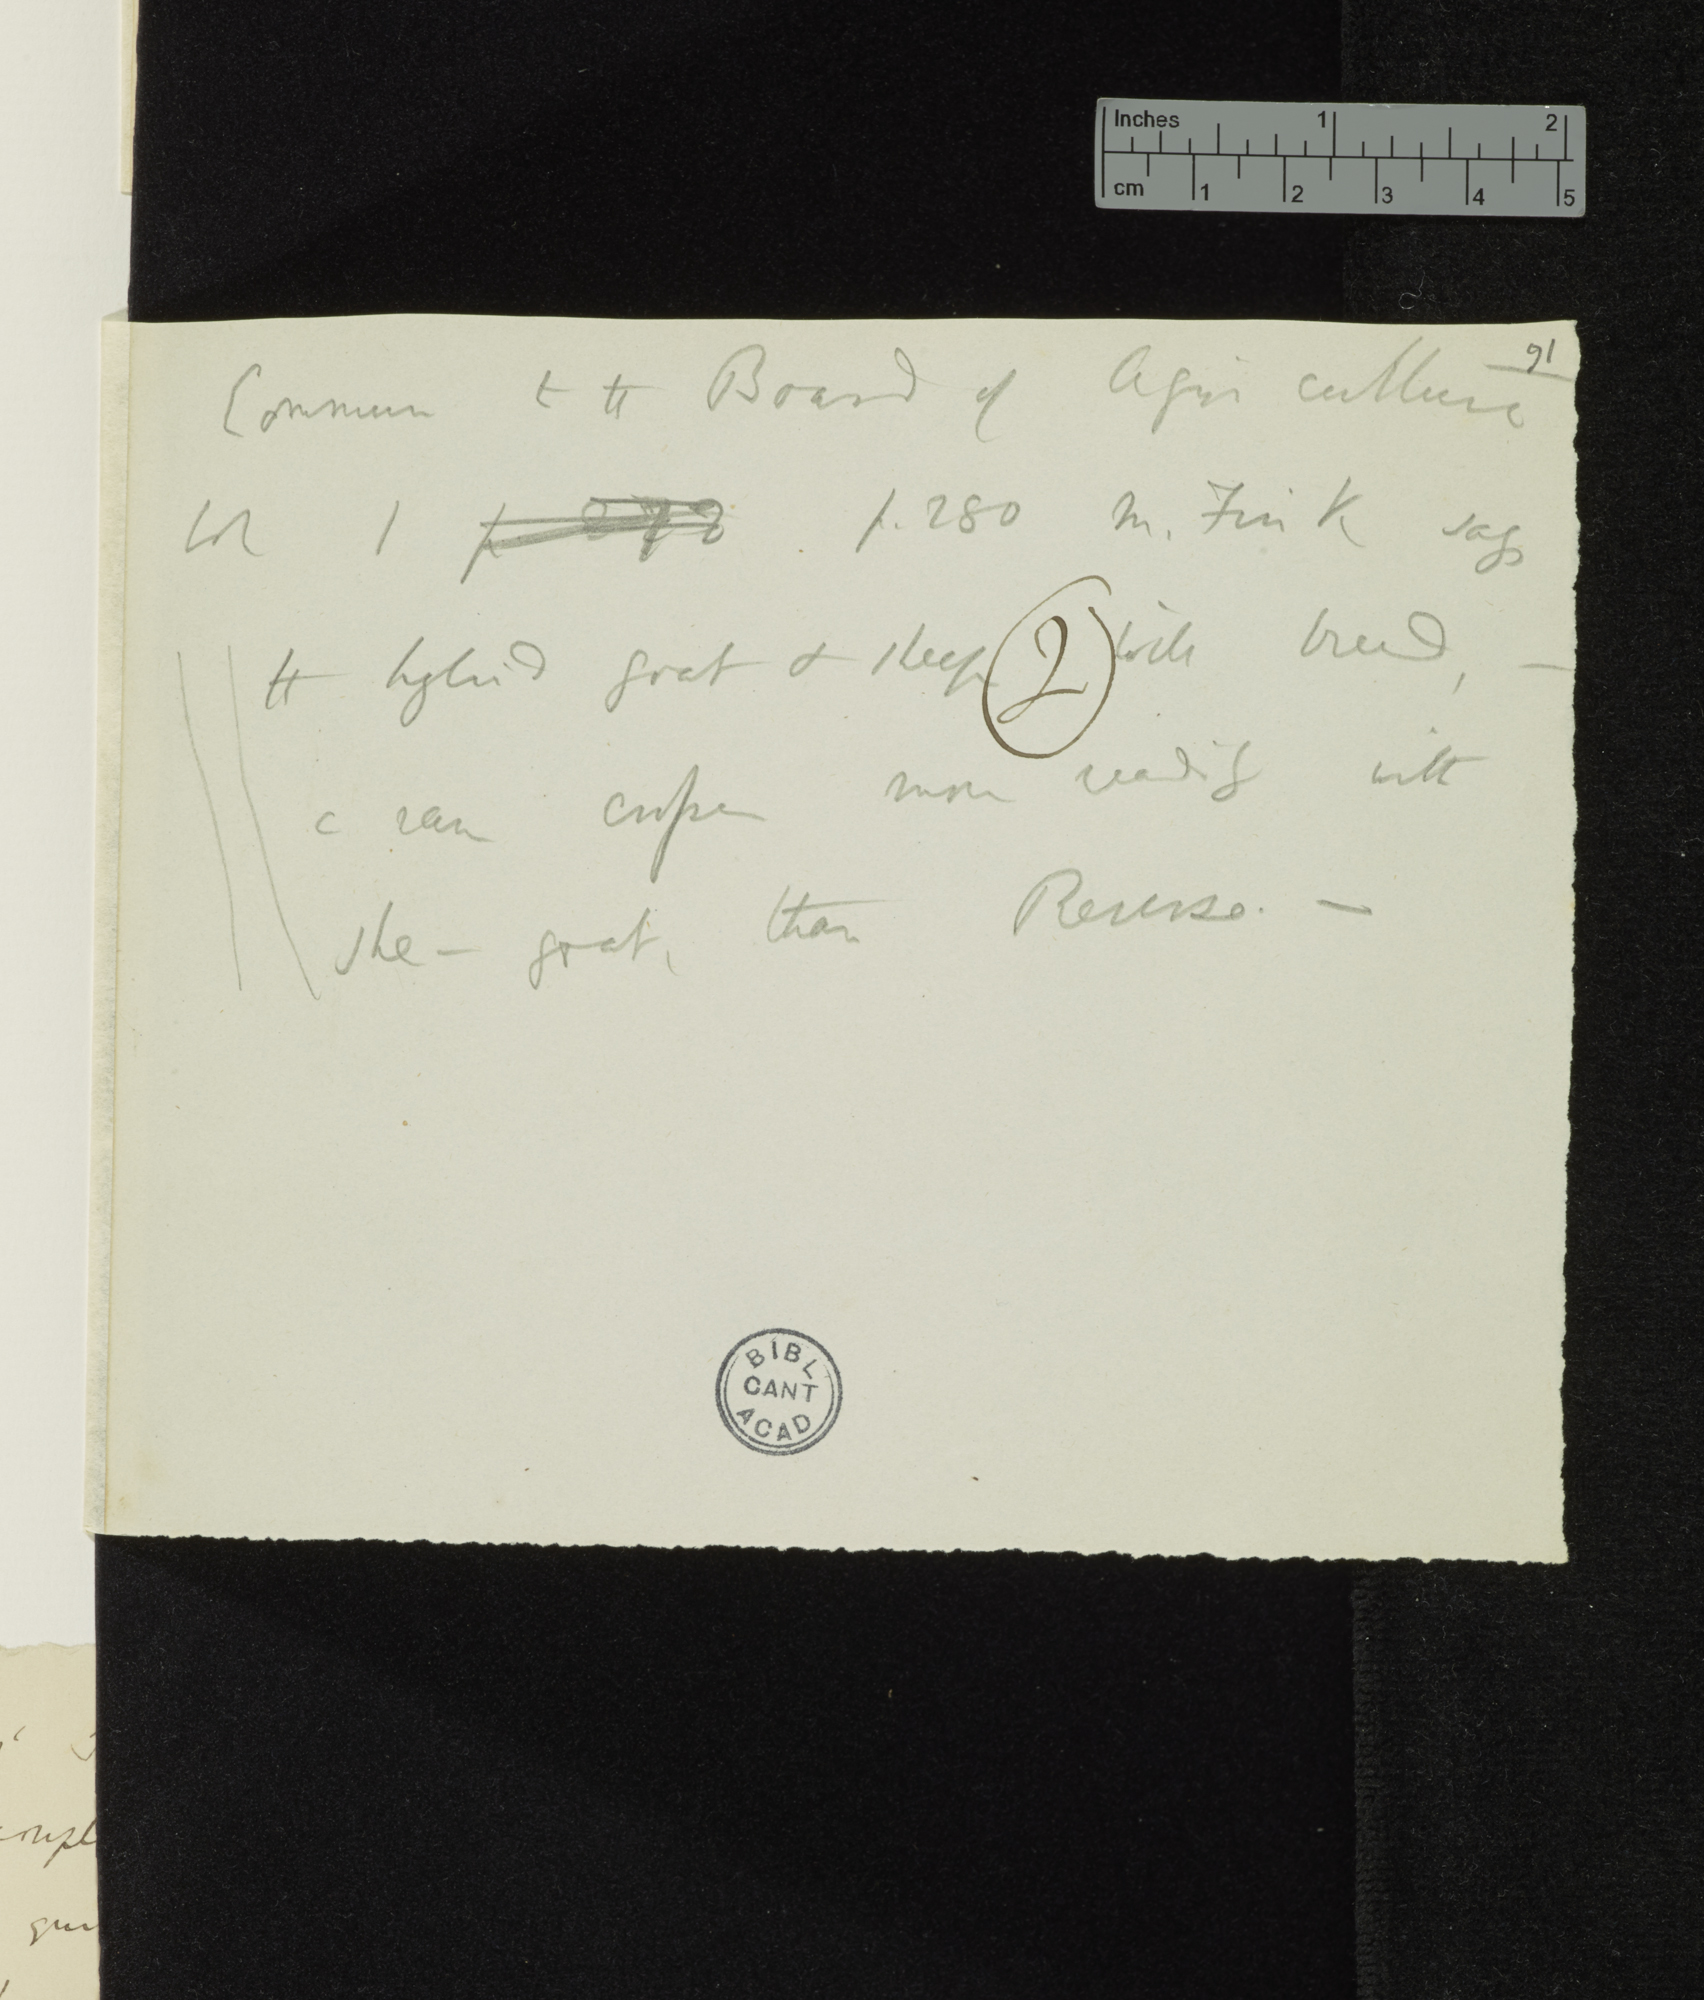 Inches 1 2
cm 1 2 3 4 5
91
Commun to the Board of Agriculture
Vol 1 p. 272 p. 280 M. Fink says
the hybrid goat & sheep will breed, —
a ram couples more readily with
she-goat, than Reverse. —
2
BIBL
CANT
ACAD